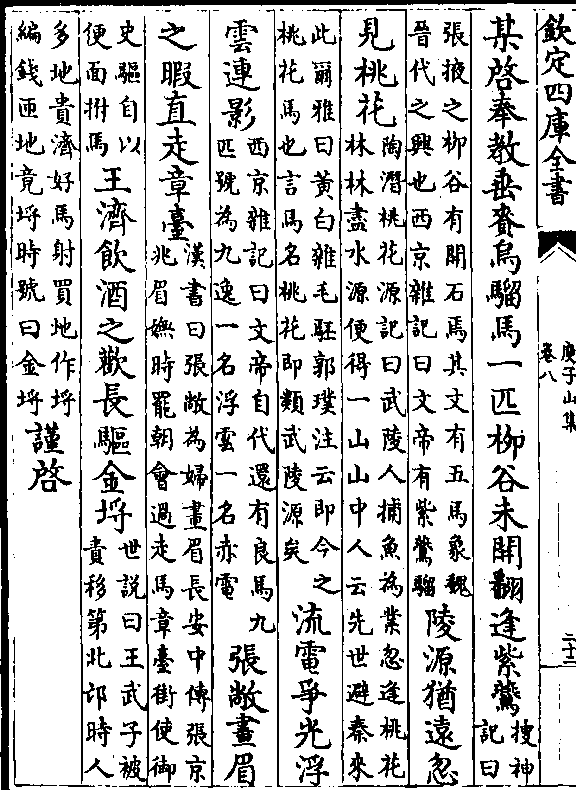 欽定四庫全書
庾子山集
卷八
二十二
某啓奉教垂賚烏騮馬一匹柳谷未開翻逢紫鷰
搜神
記曰
張掖之柳谷有開石焉其文有五馬象魏
晉代之興也西京雜記曰文帝有紫鷰騮
陵源猶遠忽
見桃花
陶潛桃花源記曰武陵人捕魚為業忽逢桃花
林林盡水源便得一山山中人云先世避秦來
此爾雅曰黃白雜毛駓郭璞注云即今之
桃花馬也言馬名桃花即類武陵源矣
流電爭光浮
雲連影
西京雜記曰文帝自代還有良馬九
匹號為九逸一名浮雲一名赤電
張敞畫眉
之暇直走章臺
漢書曰張敞為婦畫眉長安中傳張京
兆眉嫵時罷朝會過走馬章臺街使御
史驅自以
便面拊馬
王濟飲酒之歡長驅金埒
世說曰王武子被
責移第北邙時人
多地貴濟好馬射買地作埒
編錢匝地竟埒時號曰金埒
謹啓